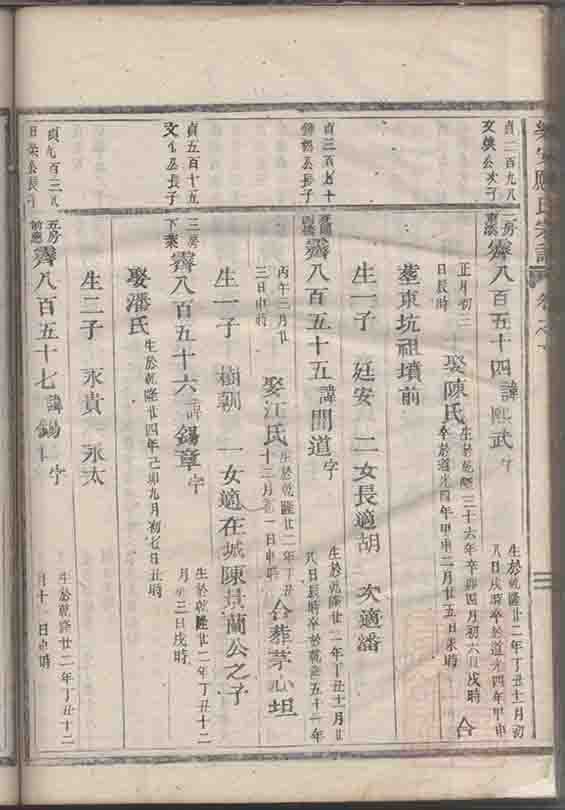 應氏宗譜
貞二百九八
文 公次子
二房
霽八百五十四諱熙武字
生於乾隆廿二年丁丑十一月初
八日戌時卒於道光四年甲申
正月初三
日辰時
娶陳氏
生於乾隆三十六年辛卯四月初六日戌時
卒於道光四年甲申二月廿五日未時
合
塟東坑祖墳前
生一子 廷安 二女長適胡 次適潘
貞三百 十
公長子
霽八百五十五諱開道字
生於乾隆廿二年丁丑十一月廿
八日辰時卒於乾隆五十一年
丙午三月廿
三日申時
娶江氏
生於乾隆廿二年丁丑
十三月 一日申時
合葬茅芯坦
生一子 樹朝 一女適在城陳其蘭公之子
貞五百十五
文 公長子
三房
下葉
霽八百五十六諱錫章字
生於乾隆廿二年丁丑十二
月初三日戌時
娶潘氏
生於乾隆廿四年己卯九月初七日丑時
生二子 永貴 永太
貞九百三
公長子
五房
前應
霽八百五十七諱錫仁字
生於乾隆廿二年丁丑十二
月十 日申時